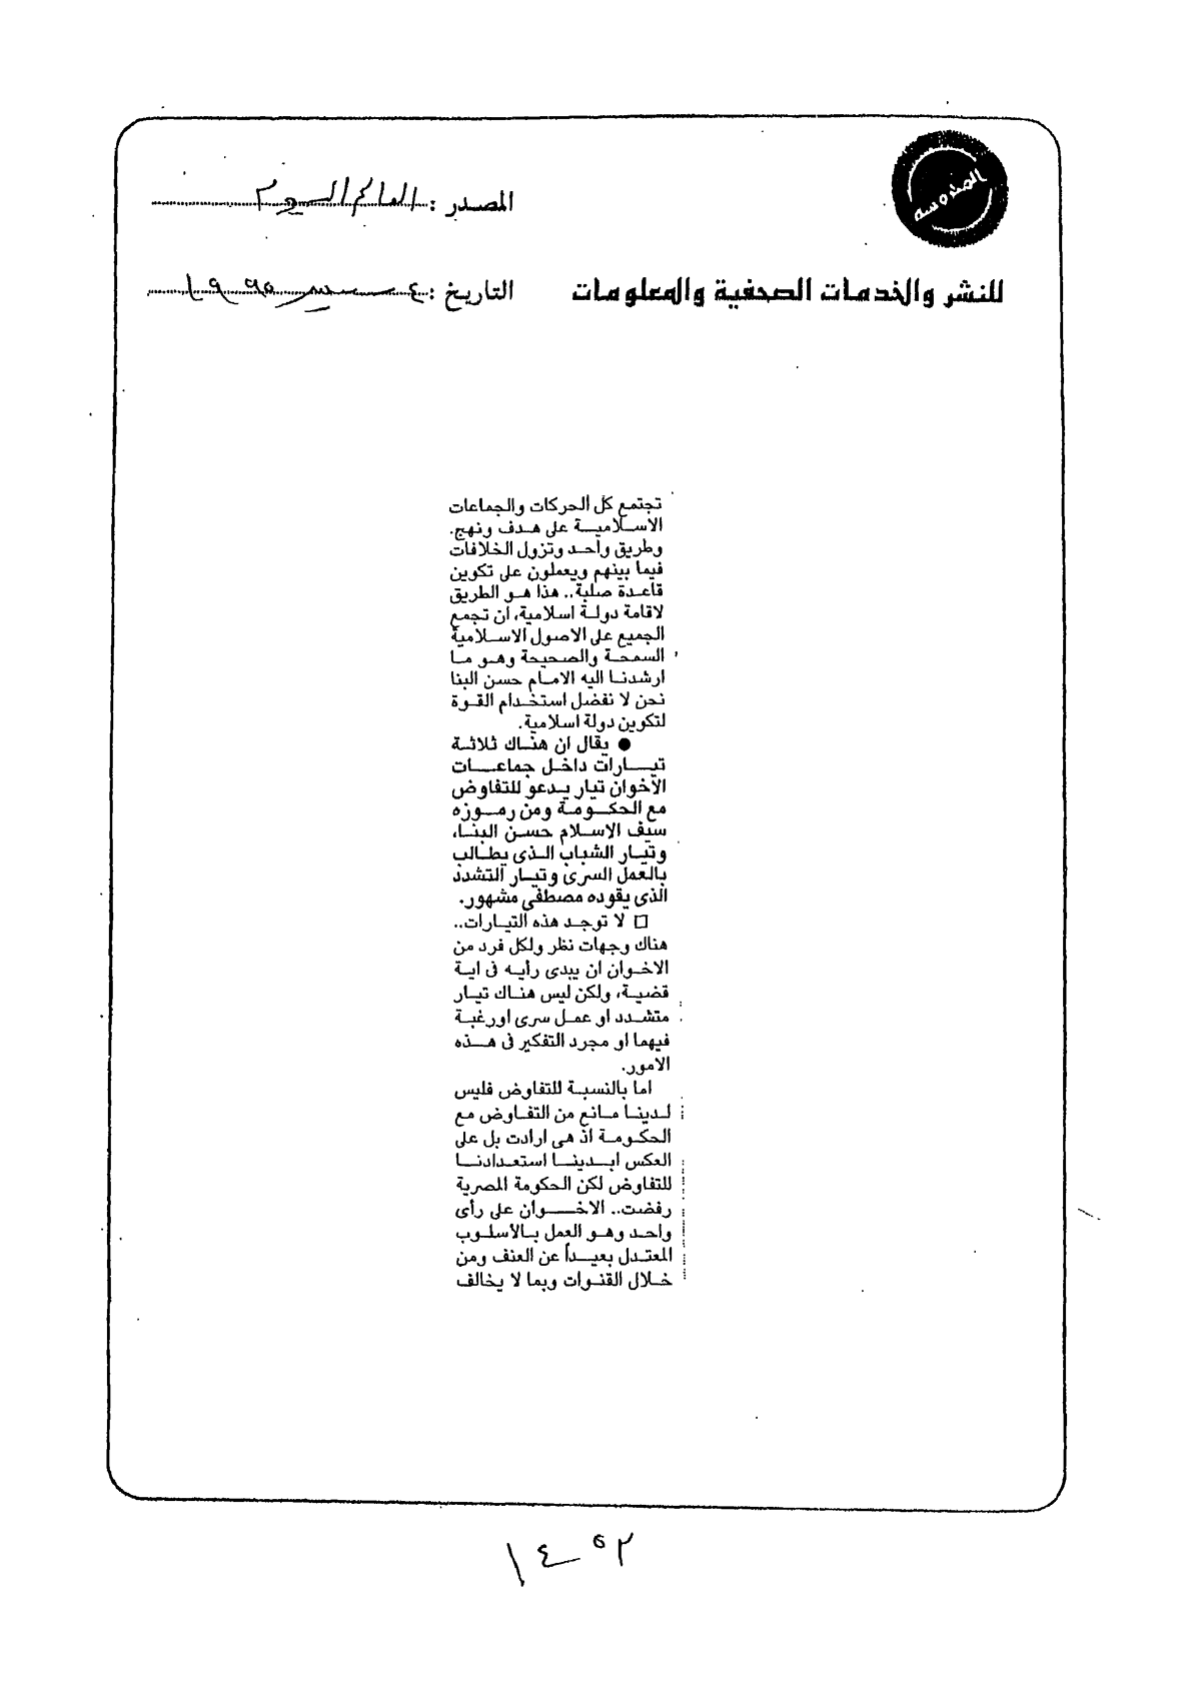 المحروسة
المصدر : العالم اليوم
للنشر والخدمات الصحفية والمعلومات
التاريخ : ٤ ١٩٩٥
تجتمع كل الحركات والجماعات
الاسلامية على هدف ونهج.
وطريق واحد وتزول الخلافات
فيما بينهم ويعملون على تكوين
قاعدة صلبة.. هذا هو الطريق
لاقامة دولة اسلامية، ان تجمع
الجميع على الاصول الاسلامية
السمحة والصحيحة وهو ما
ارشدنا اليه الامام حسن البنا
نحن لا نفضل استخدام القوة
لتكوين دولة اسلامية.
● يقال ان هناك ثلاثة
تيارات داخل جماعات
الأخوان تيار يدعو للتفاوض
مع الحكومة ومن رموزه
سيف الاسلام حسن البنا،
وتيار الشباب الذى يطالب
بالعمل السرى وتيار التشدد
الذى يقوده مصطفى مشهور.
□ لا توجد هذه التيارات..
هناك وجهات نظر ولكل فرد من
الاخوان ان يبدى رأيه فى اية
قضية، ولكن ليس هناك تيار
متشدد او عمل سرى اورغبة
فيهما او مجرد التفكير فى هذه
الامور.
اما بالنسبة للتفاوض فليس
لدينا مانع من التفاوض مع
الحكومة اذ هى ارادت بل على
العكس ابدينا استعدادنا
للتفاوض لكن الحكومة المصرية
رفضت.. الاخوان على رأى
واحد وهو العمل بالأسلوب
المعتدل بعيداً عن العنف ومن
خلال القنوات وبما لا يخالف
١٤٥٢